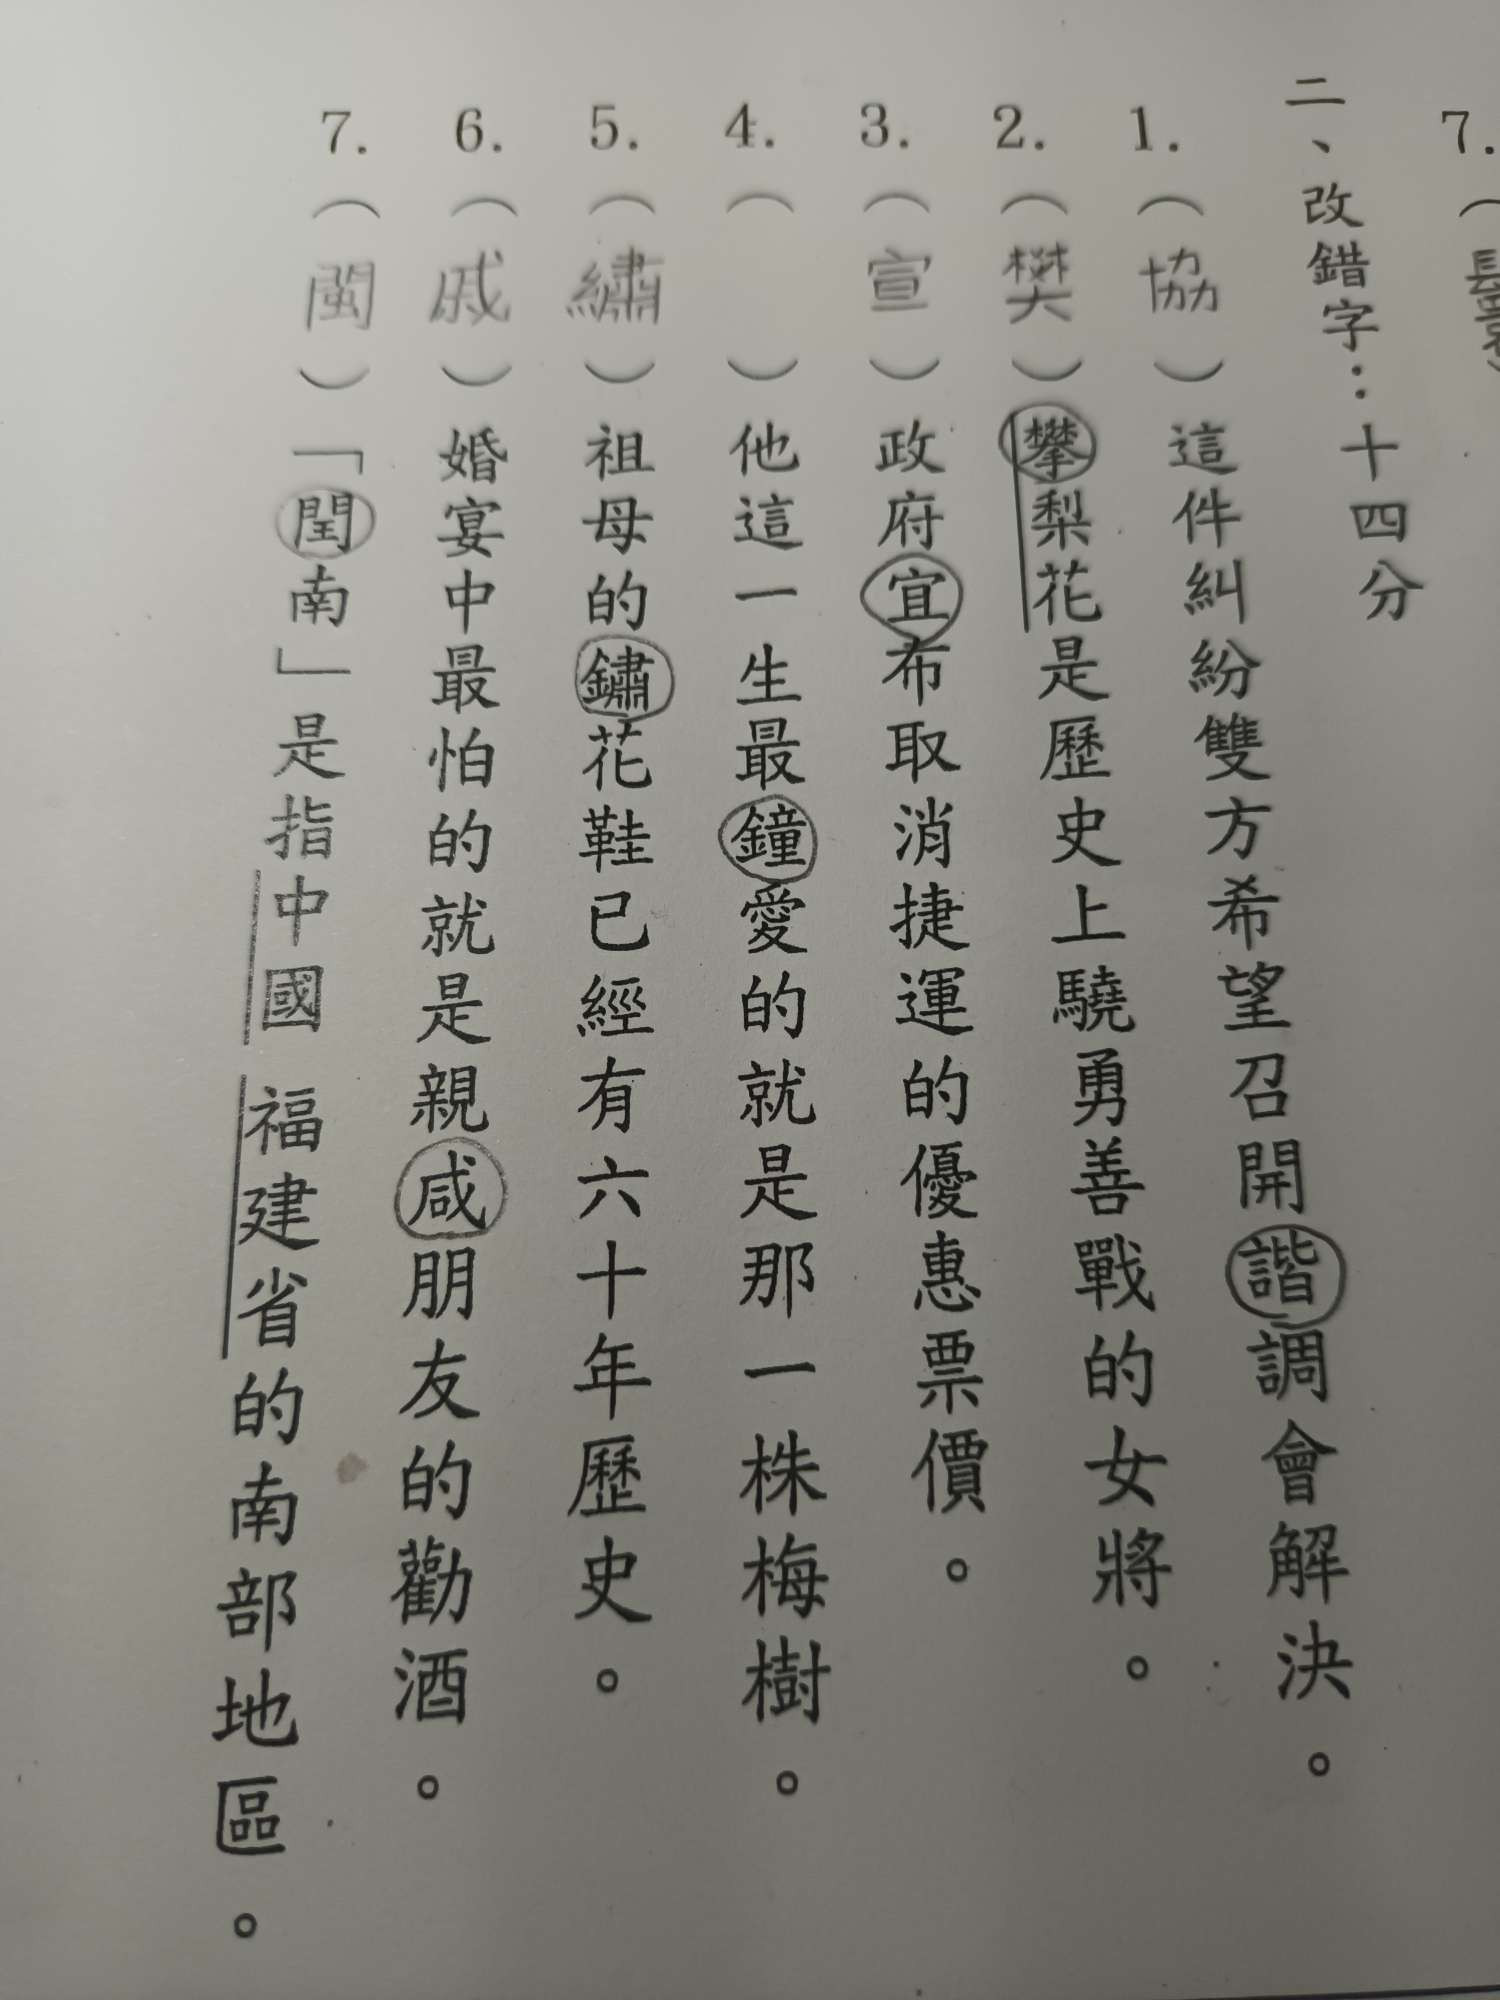 7.（
二、改錯字：十四分
1.（協）這件糾紛雙方希望召開諧調會解決。
2.（樊）攀梨花是歷史上驍勇善戰的女將。
3.（宣）政府宜布取消捷運的優惠票價。
4.（　）他這一生最鐘愛的就是那一株梅樹。
5.（繡）祖母的鏽花鞋已經有六十年歷史。
6.（戚）婚宴中最怕的就是親咸朋友的勸酒。
7.（閩）「閏南」是指中國 福建省的南部地區。